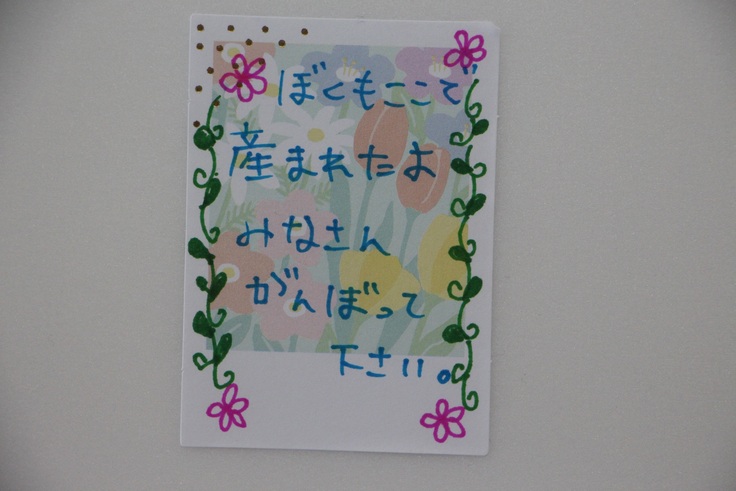 ぼくもここで
産まれたよ
みなさん
がんばって
下さい。